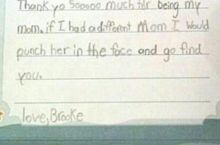 Thank yo sooooo much for being my
mom. if I had a different Mom I would
punch her in the face and go find
you.
love, Brooke